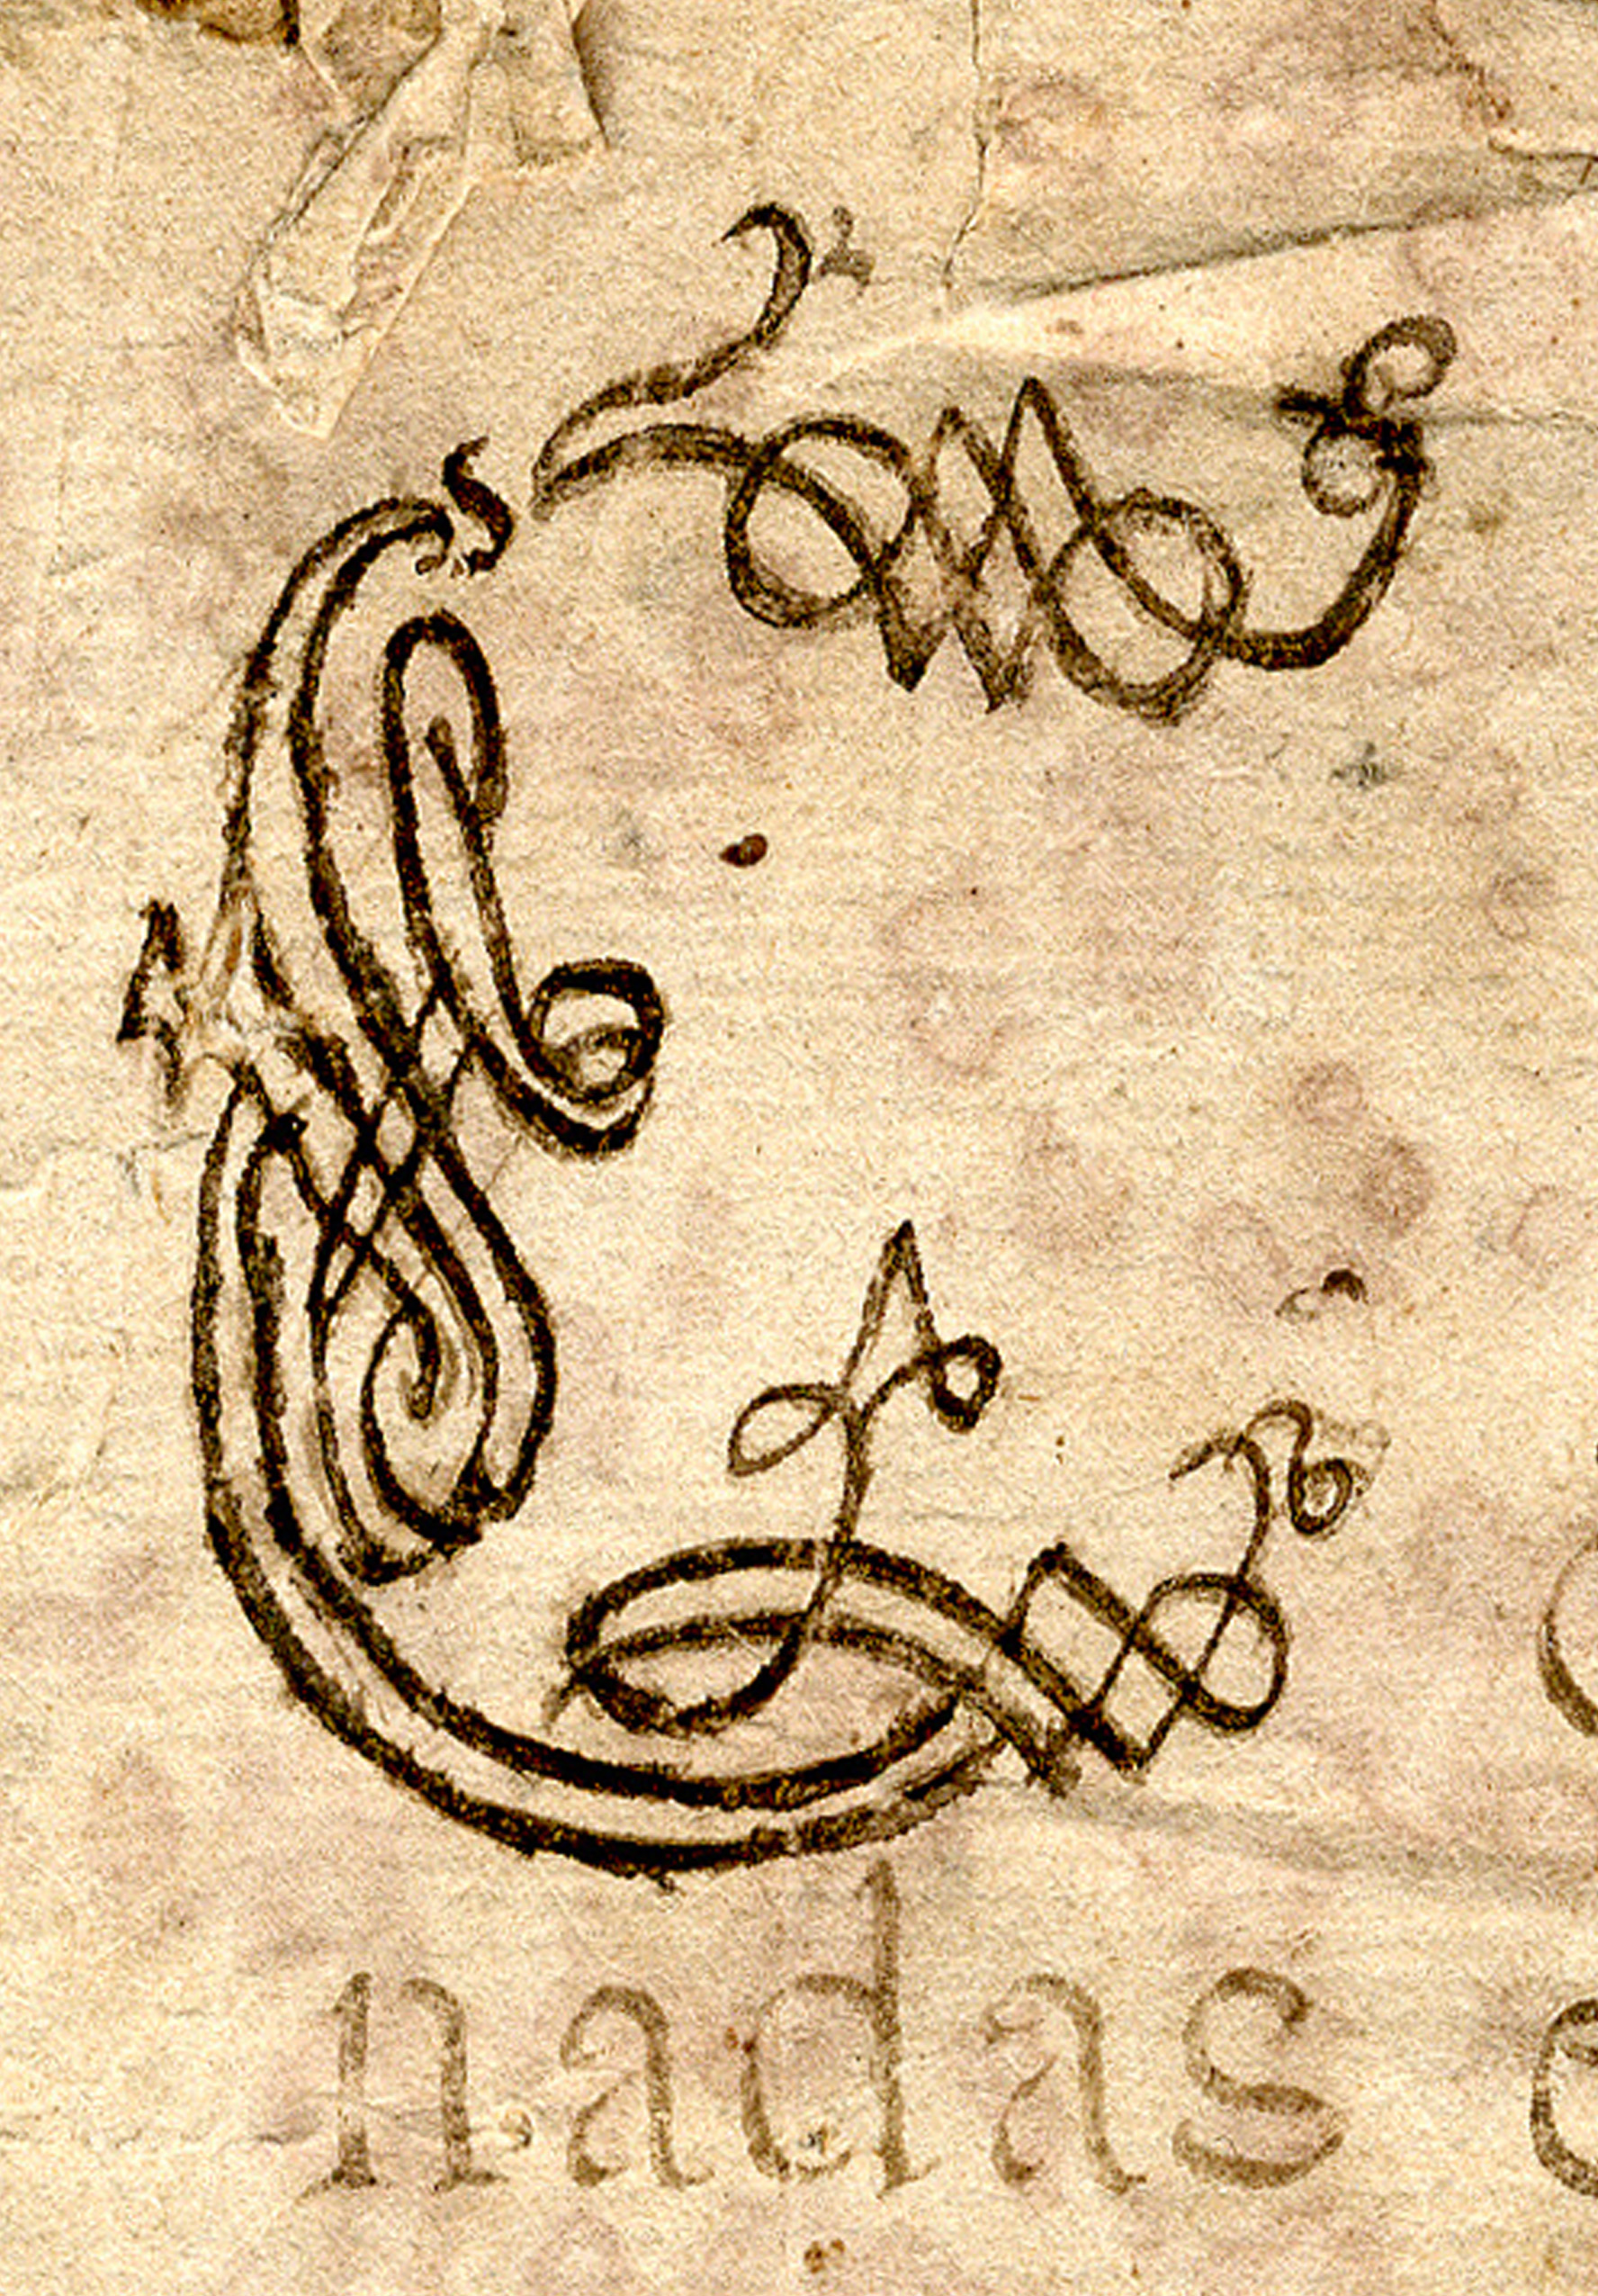 C
nadas